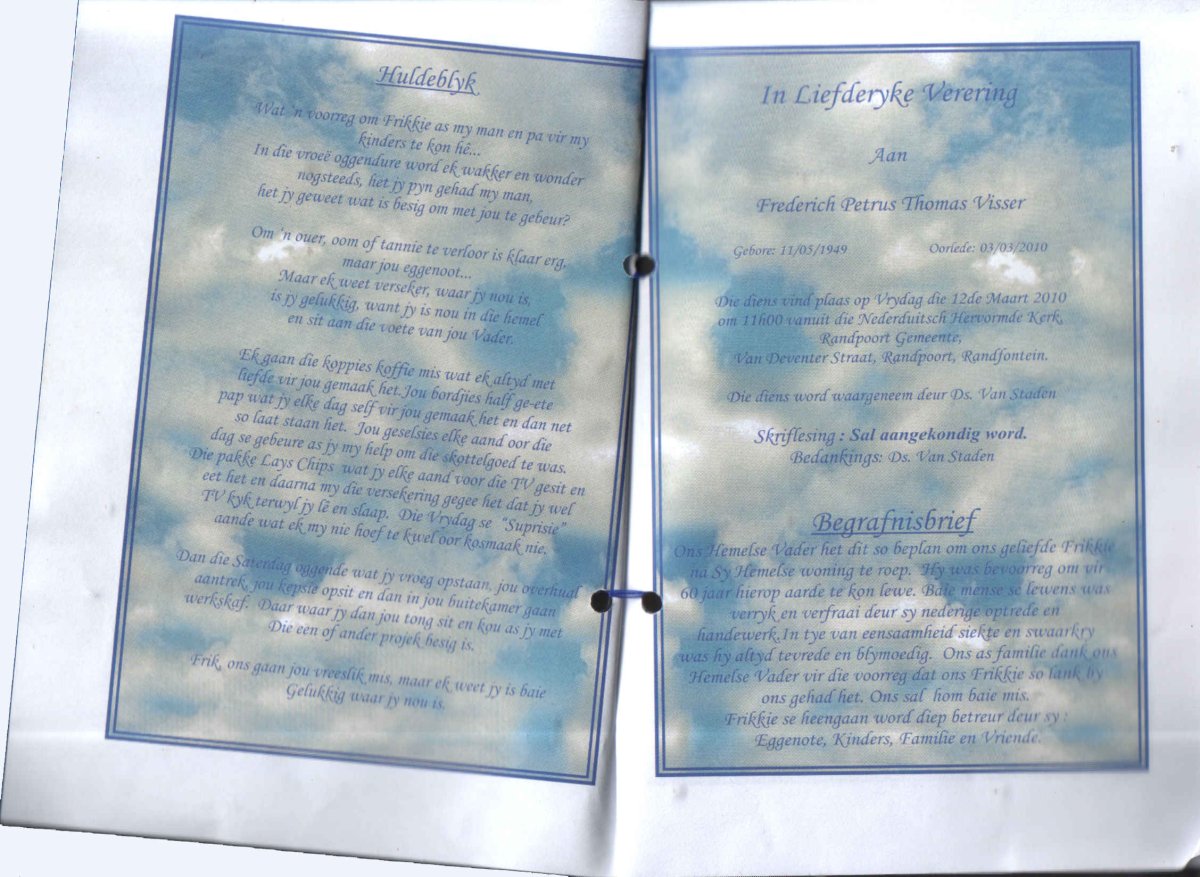 Huldeblyk
Wat 'n voorreg om Frikkie as my man en pa vir my
kinders te kon hê...
In die vroeë oggendure word ek wakker en wonder
nogsteeds, het jy pyn gehad my man,
het jy geweet wat is besig om met jou te gebeur?
Om 'n ouer, oom of tannie te verloor is klaar erg,
maar jou eggenoot...
Maar ek weet verseker, waar jy nou is,
is jy gelukkig, want jy is nou in die hemel
en sit aan die voete van jou Vader.
Ek gaan die koppies koffie mis wat ek altyd met
liefde vir jou gemaak het.Jou bordjies half ge-ete
pap wat jy elke dag self vir jou gemaak het en dan net
so laat staan het. Jou geselsies elke aand oor die
dag se gebeure as jy my help om die skottelgoed te was.
Die pakke Lays Chips wat jy elke aand voor die TV gesit en
eet het en daarna my die versekering gegee het dat jy wel
TV kyk terwyl jy lê en slaap. Die Vrydag se "Suprisie"
aande wat ek my nie hoef te kwel oor kosmaak nie.
Dan die Saterdag oggende wat jy vroeg opstaan, jou overhual
aantrek, jou kepsie opsit en dan in jou buitekamer gaan
werkskaf. Daar waar jy dan jou tong sit en kou as jy met
Die een of ander projek besig is.
Frik, ons gaan jou vreeslik mis, maar ek weet jy is baie
Gelukkig waar jy nou is.
In Liefderyke Verering
Aan
Frederich Petrus Thomas Visser
Gebore: 11/05/1949 Oorlede: 03/03/2010
Die diens vind plaas op Vrydag die 12de Maart 2010
om 11h00 vanuit die Nederduitsch Hervormde Kerk,
Randpoort Gemeente,
Van Deventer Straat, Randpoort, Randfontein.
Die diens word waargeneem deur Ds. Van Staden
Skriflesing : Sal aangekondig word.
Bedankings: Ds. Van Staden
Begrafnisbrief
Ons Hemelse Vader het dit so beplan om ons geliefde Frikkie
na Sy Hemelse woning te roep. Hy was bevoorreg om vir
60 jaar hierop aarde te kon lewe. Baie mense se lewens was
verryk en verfraai deur sy nederige optrede en
handewerk.In tye van eensaamheid siekte en swaarkry
was hy altyd tevrede en blymoedig. Ons as familie dank ons
Hemelse Vader vir die voorreg dat ons Frikkie so lank by
ons gehad het. Ons sal hom baie mis.
Frikkie se heengaan word diep betreur deur sy :
Eggenote, Kinders, Familie en Vriende.